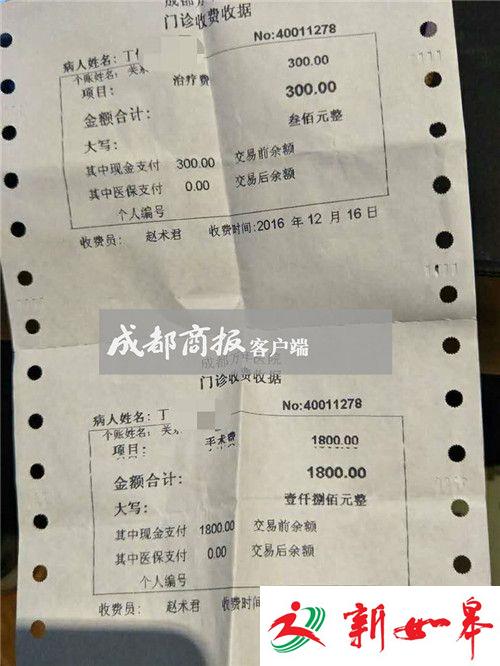 门诊收费收据
No:40011278
病人姓名: 丁
个账姓名: 关
项目: 治疗费 300.00
金额合计: 300.00
大写: 叁佰元整
其中现金支付 300.00 交易前余额
其中医保支付 0.00 交易后余额
个人编号
收费员: 赵术君 收费时间:2016 年 12 月 16 日
成都商报客户端
门诊收费收据
No:40011278
病人姓名: 丁
个账姓名: 关
项目: 手术费 1800.00
金额合计: 1800.00
大写: 壹仟捌佰元整
其中现金支付 1800.00 交易前余额
其中医保支付 0.00 交易后余额
个人编号
收费员: 赵术君 收费时间
新如皋